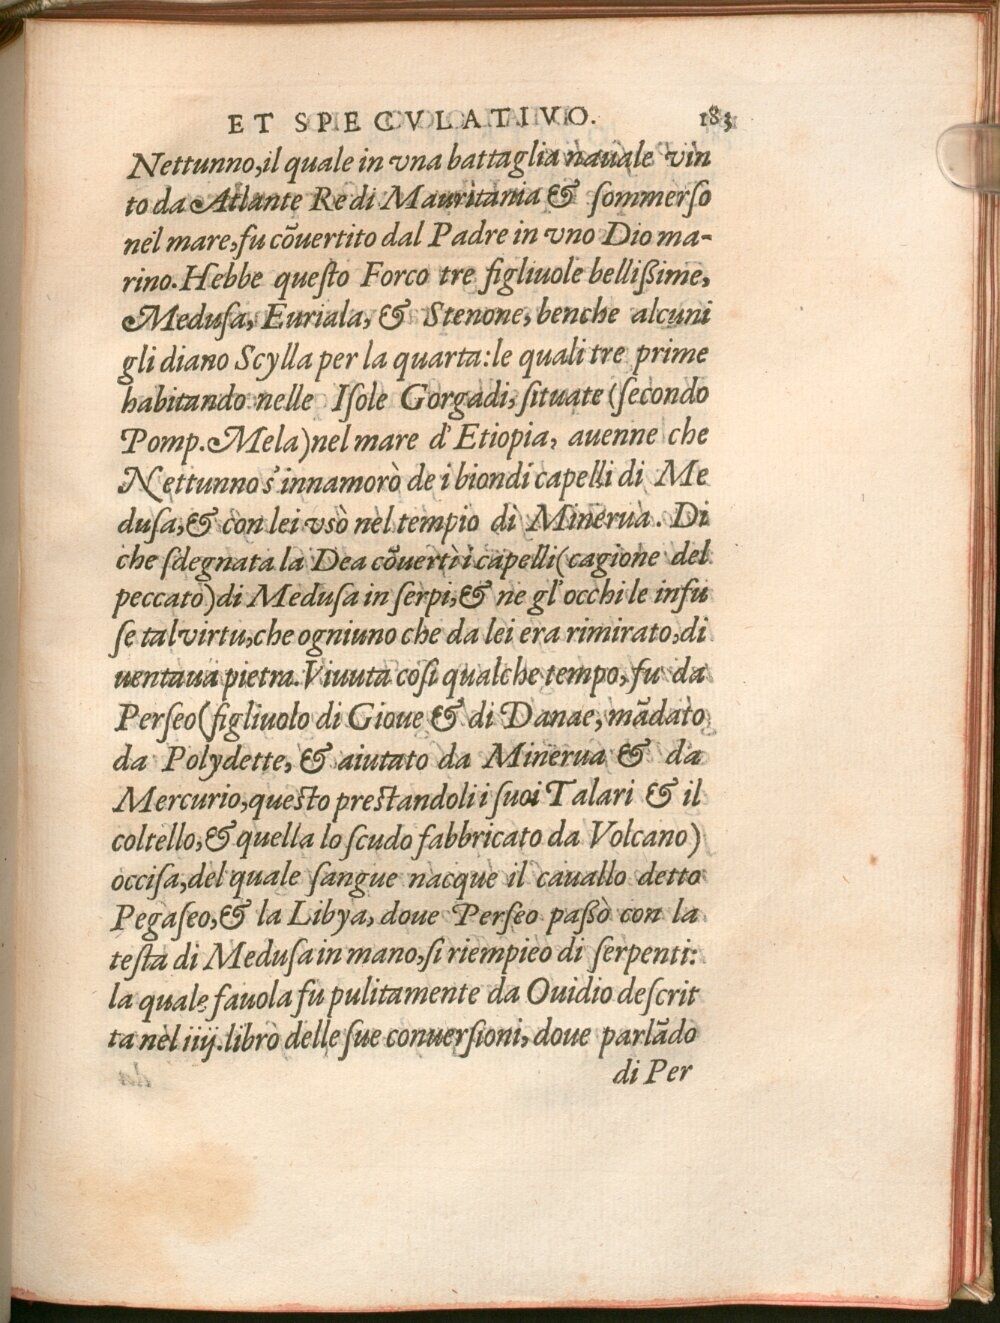 ET SPECVLATIVO. 183
Nettunno, il quale in vna battaglia nauale vin
to da Atlante Re di Mauritania & ſommerſo
nel mare, fu cõuertito dal Padre in vno Dio ma-
rino. Hebbe queſto Forco tre figliuole belliſsime,
Meduſa, Euriala, & Stenone, benche alcuni
gli diano Scylla per la quarta: le quali tre prime
habitando nelle Iſole Gorgadi, ſituate (ſecondo
Pomp. Mela) nel mare d'Etiopia, auenne che
Nettunno s'innamorò de i biondi capelli di Me
duſa, & con lei vsò nel tempio di Minerua. Di
che ſdegnata la Dea cõuertì i capelli (cagione del
peccato) di Meduſa in ſerpi, & ne gl'occhi le infu
ſe tal virtu, che ogniuno che da lei era rimirato, di
uentaua pietra. Viuuta coſi qualche tempo, fu da
Perſeo (figliuolo di Gioue & di Danae, mãdato
da Polydette, & aiutato da Minerua & da
Mercurio, queſto preſtandoli i ſuoi Talari & il
coltello, & quella lo ſcudo fabbricato da Volcano)
occiſa, del quale ſangue nacque il cauallo detto
Pegaſeo, & la Libya, doue Perſeo paſsò con la
teſta di Meduſa in mano, ſi riempieo di ſerpenti:
la quale fauola fu pulitamente da Ouidio deſcrit
ta nel iiij. libro delle ſue conuerſioni, doue parlãdo
di Per